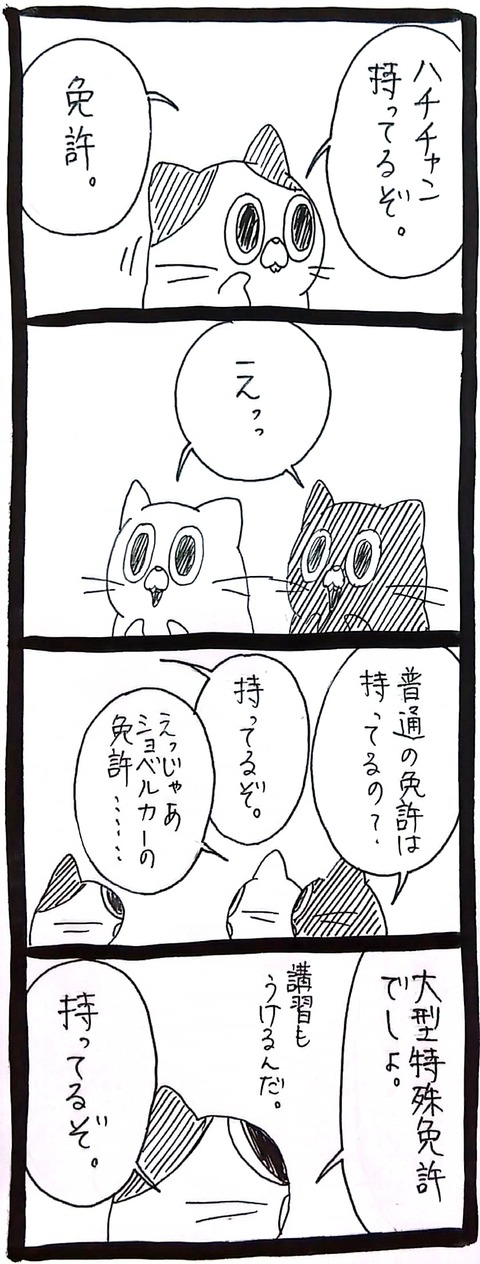 ハチチャン
持ってるぞ。
免許。
えっっ
普通の免許は
持ってるの？
持ってるぞ。
えっじゃあ
ショベルカーの
免許……
大型特殊免許
でしょ。
講習も
うけるんだ。
持ってるぞ。